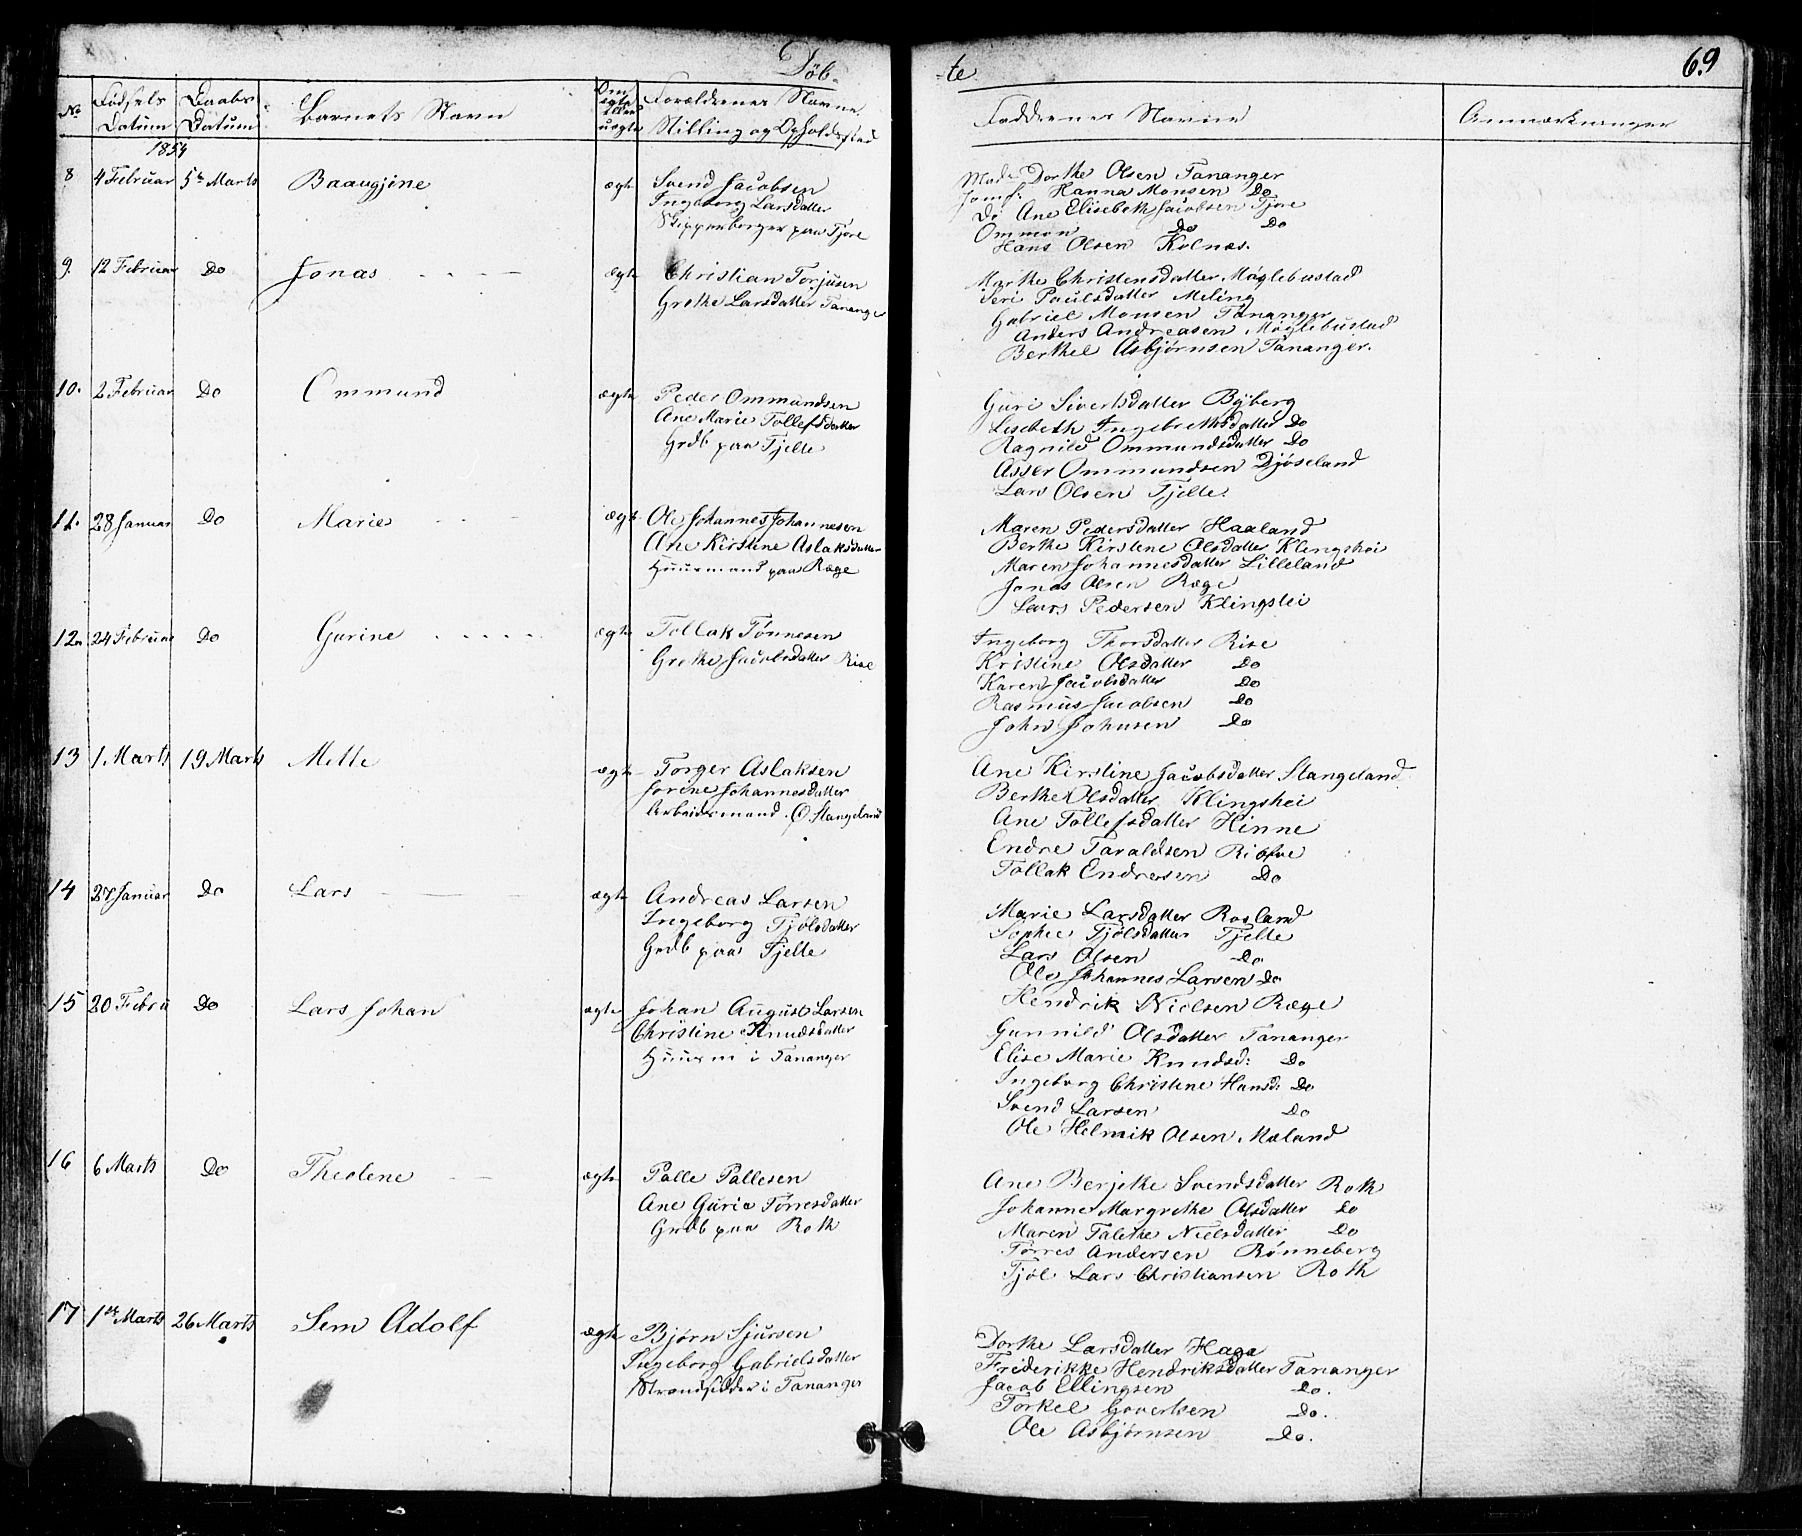 Døb-
-te
69
No
Fødsels Datum
Daabs Datum
Barnets Navn
Om ægte eller uægte
Forældrenes Navne Stilling og Opholdssted
Faddrenes Navne
Anmærkninger
1854
8 4 Februar 5te Marts Baaugjine ægte Svend Jacobsen
Ingeborg Larsdatter
Skipperborger paa Tjore
Mad. Dorthe Olsen Tananger
Jomf: Hanna Monsen Do
Do Ane Elisebeth Jacobsen Tjore
Ommon Do Do
Hans Olsen Kolnæs.
9. 12 Februar Do Jonas ægte Christian Torjusen
Grethe Larsdatter Tananger
Marthe Christensdatter Møglebustad
Seri Paulsdatter Meling
Gabriel Monsen Tananger
Anders Andreasen Møglebustad
Berthel Asbjørnsen Tananger.
10. 2 Februar Do Ommund ægte Peder Ommundsen
Ane Marie Tollefsdatter
Grdb paa Tjelte
Guri Sivertsdatter Byberg
Lisebeth Ingebrethsdatter Do
Ragnild Ommundsdatter Do
Asser Ommundsen Djøseland
Lars Olsen Tjelte.
11. 28 Januar Do Marie ægt Ole Johannes Johannesen
Ane Kirstine Aslaksdatter
Huusmand paa Ræge
Maren Pedersdatter Haaland
Berthe Kirstine Olsdatter Klingshei
Maren Johannesdatter Lilleland
Jonas Olsen Ræge
Lars Pedersen Klingshei
12. 24 Februar Do Gurine ægte Tollak Tønnesen
Grethe Jacobsdatter Rise
Ingeborg Thorsdatter Rise
Kristine Olsdatter Do
Karen Jacobsdatter Do
Rasmus Jacobsen Do
John Johnsen Do
13 1 Marts 19 Marts Mette ægte Torger Aslaksen
Sorine Johannesdatter
Arbeidsmand. Ø. Stangeland
Ane Kirstine Jacobsdatter Stangeland
Berthe Olsdatter Klingshei
Ane Tollefsdatter Hinne
Endre Taraldsen Risøre
Tollak Endresen Do
14 27 Januar Do Lars ægte Andreas Larsen
Ingeborg Tjølsdatter
Grdb paa Tjelte
Marie Larsdatter Rosland
Sophie Tjølsdatter Tjelte
Lars Olsen Do
Ole Johannes Larsen Do
Hendrik Nielsen Ræge
15 20 Febru Do Lars Johan ægte Johan August Larsen
Christine Knudsdatter
Huusm i Tananger
Gunnild Olsdatter Tananger
Elise Marie Knudsd: Do
Ingeborg Christine Hansd: Do
Svend Larsen Do
Ole Helmik Olsen Mæland
16 6 Marts Do Theolene ægte Palle Pallesen
Ane Gurie Tørresdatter
Grdb paa Roth
Ane Berjethe Svendsdatter Roth
Johanne Margrethe Olsdatter Do
Maren Talethe Nielsdatter Do
Tørres Andersen Rønneberg
Tjøl Lars Christiansen Roth
17 1ste Marts 26 Marts Sem Adolf ægte Bjørn Sjursen
Ingeborg Gabrielsdatter
Strandsidder i Tananger
Dorthe Larsdatter Haga
Friderikke Hendriksdatter Tananger
Jacob Ellingsen Do.
Torkel Govertsen Do.
Ole Asbjørnsen Do.